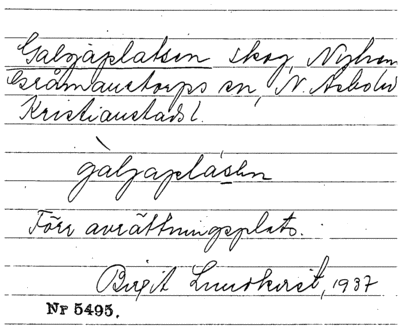 Galgaplatsen skog, Nybron
Gråmanstorps sn, N. Åsbo hd
Kristianstads l.
gàljaplásen
Förr avrättningsplats.
Birgit Lundkvist, 1937
Nr 5495.